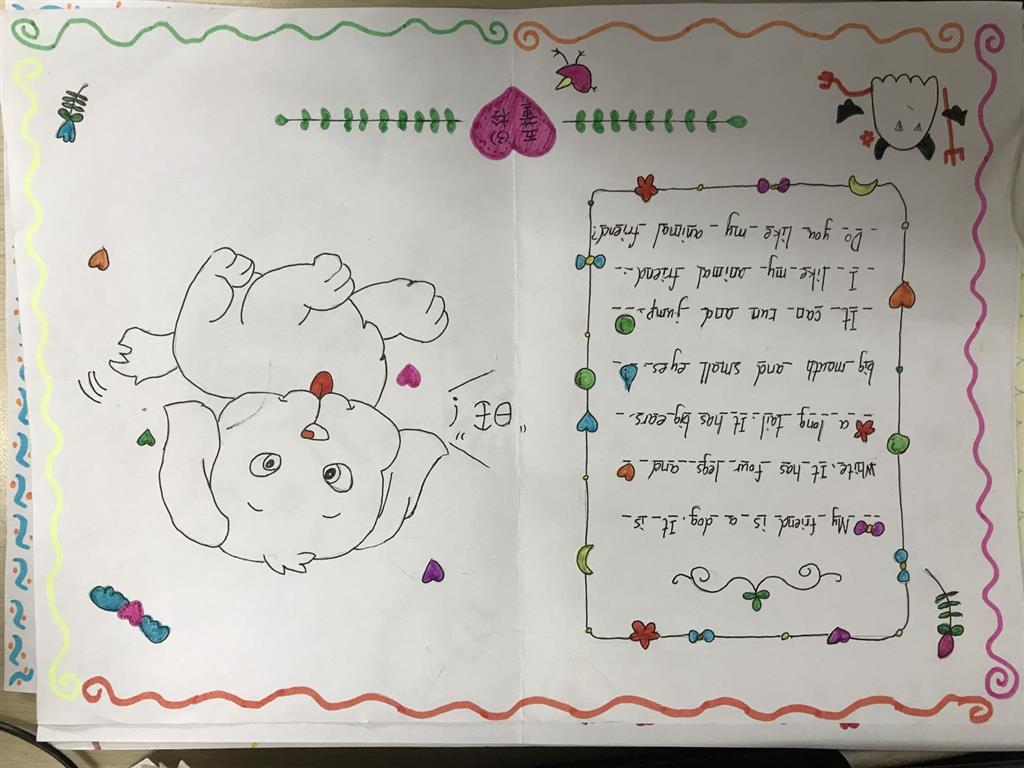 My friend is a dog. It is
white. It has four legs and
a long tail. It has big ears.
big mouth and small eyes.
It can run and jump.
I like my animal friend.
Do you like my animal friend?
"旺"!